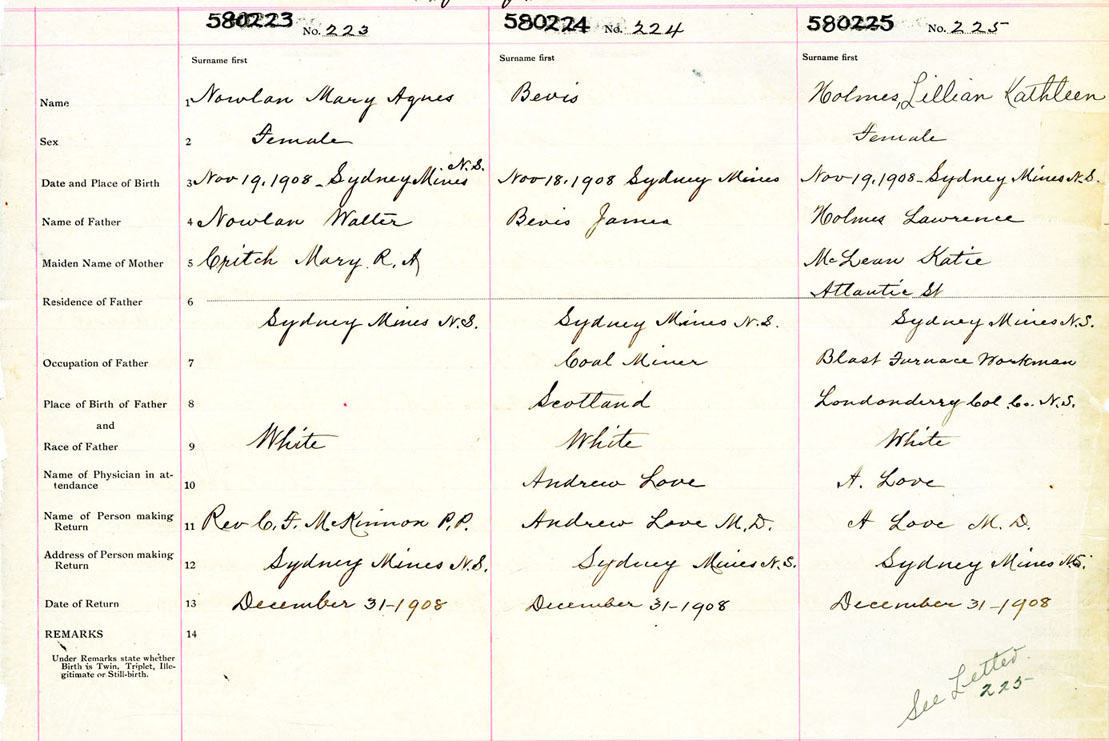 580223 No. 223 580224 No. 224 580225 No. 225
Surname first Surname first Surname first
Name 1 Nowlan Mary Agnes Bevis Holmes, Lillian Kathleen
Sex 2 Female Female
Date and Place of Birth 3 Nov 19, 1908 - Sydney Mines N.S. Nov 18, 1908 Sydney Mines Nov 19, 1908 - Sydney Mines N.S.
Name of Father 4 Nowlan Walter Bevis James Holmes Lawrence
Maiden Name of Mother 5 Critch Mary R. A McLean Katie
Residence of Father 6 Atlantic St
Sydney Mines N.S. Sydney Mines N.S. Sydney Mines N.S.
Occupation of Father 7 Coal Miner Blast Furnace Workman
Place of Birth of Father 8 Scotland Londonderry Col. Co. N.S.
and
Race of Father 9 White White White
Name of Physician in at-
tendance 10 Andrew Love A. Love
Name of Person making
Return 11 Rev C. F. McKinnon P.P. Andrew Love M.D. A Love M.D.
Address of Person making
Return 12 Sydney Mines N.S. Sydney Mines N.S. Sydney Mines N.S.
Date of Return 13 December 31-1908 December 31-1908 December 31-1908
REMARKS 14
Under Remarks state whether
Birth is Twin, Triplet, Ille-
gitimate or Still-birth.
See Letter
225